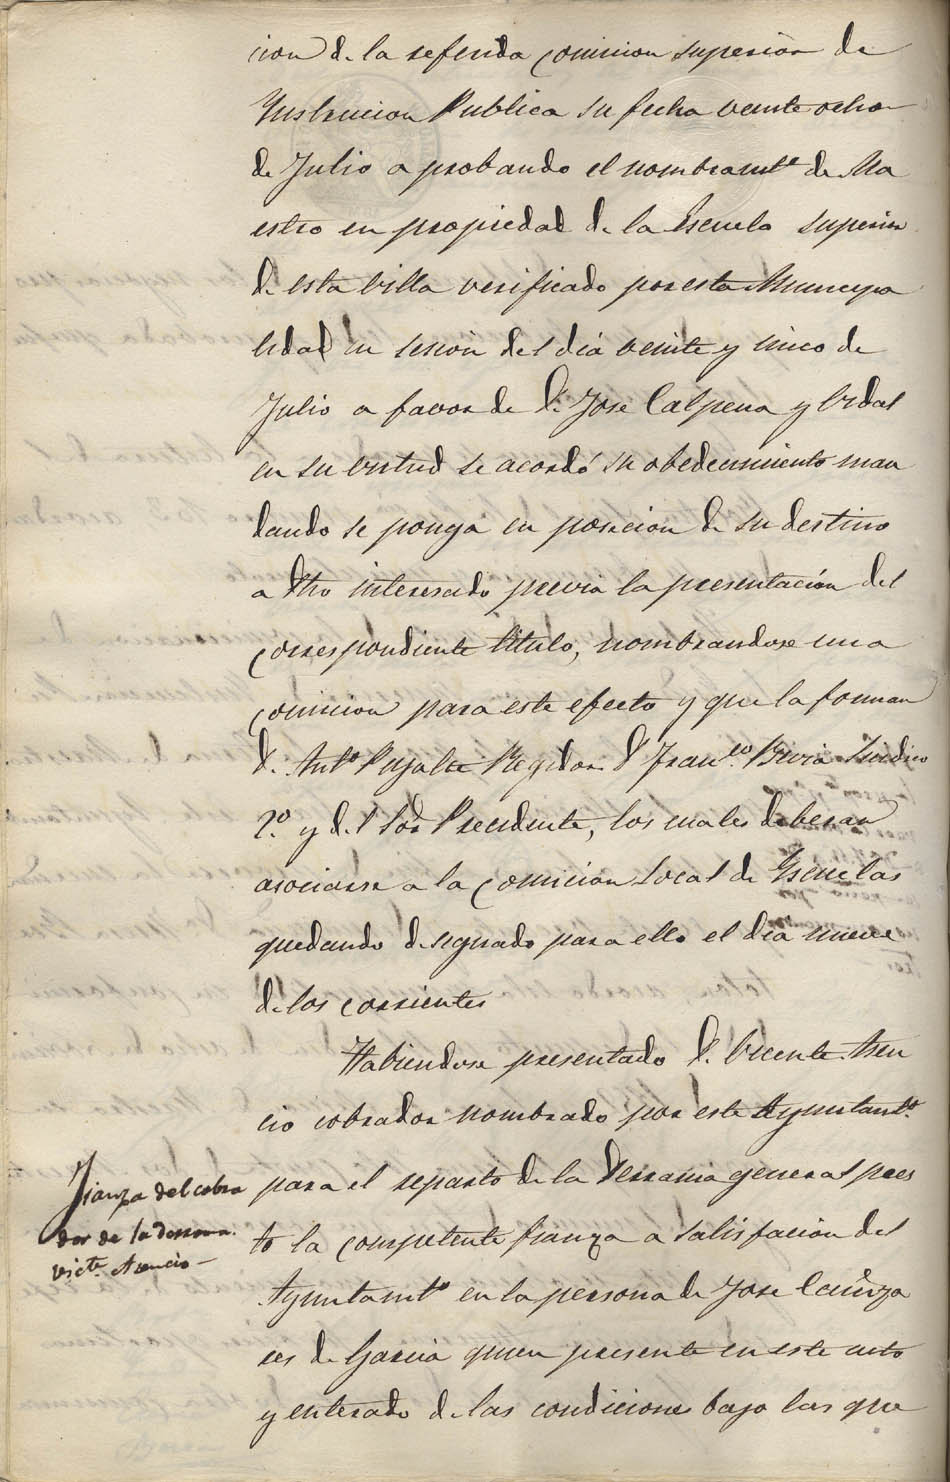 cion de la referida comicion superior de
Ynstrucion Publica su fecha veinte ocho
de Julio aprobando el nombramto. de Ma
estro en propiedad de la Escuela superior
de esta billa verificado por esta Municipa
lidad en sesion del dia veinte y sinco de
Julio a favor de D. Jose Calpena y bidal
en su virtud se acordó su obedecimiento man
dando se ponga en posecion de su destino
a dho interesado previa la presentación del
correspondiente titulo, nombrandose una
comicion para este efecto y que la forman
D. Anto. Pujalte Regidor D Franco. Beviá Sindico
2º. y del Sor Precidente, los cuales deberan
asociarse a la comicion Local de Escuelas
quedando designado para ello el dia nueve
de los corrientes
Habiendose presentado D. bicente Asen
cio cobrador nombrado por este Ayuntamto.
Fianza del cobra
dor de la derrama.
victe. Asencio
para el reparto de la Derrama general pres
to la competente fianza a satisfacion del
Ayuntamto. en la persona de Jose Cañiza
res de Garcia quien presente en este acto
y enterado de las condiciones bajo las que